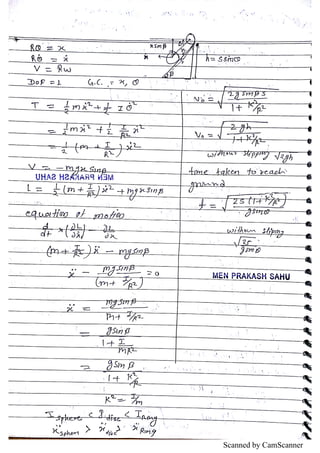 Rθ = x
Rθ̇ = ẋ
V = Rω
DOF = 1 G.C. = x, θ
T = 1/2 mẋ² + 1/2 I θ̇²
= 1/2 mẋ² + 1/2 I/R² ẋ²
= 1/2 (m + I/R²) ẋ²
V = -mgx sinβ
MEN PRAKASH SAHU
L = 1/2 (m + I/R²) ẋ² + mgx sinβ
equation of motion
d/dt (∂L/∂ẋ) - ∂L/∂x
(m + I/R²) ẍ - mg sinβ
ẍ - mg sinβ/(m + I/R²) = 0
ẍ = mg sinβ/(m + I/R²)
= g sinβ/(1 + I/mR²)
= g sinβ/(1 + k²/R²)
k² = I/m
I sphere < I disc < I ring
ẍ sphere > ẍ disc > ẍ Ring
x sinβ
h = s sinα
= √(2g sinβ s/(1 + k²/R²))
= √(2gh/(1 + k²/R²))
without slipping √2gh
time taken to reach
ground
t = √(2s (1 + k²/R²)/g sinα)
without slipping
MEN PRAKASH SAHU
Scanned by CamScanner